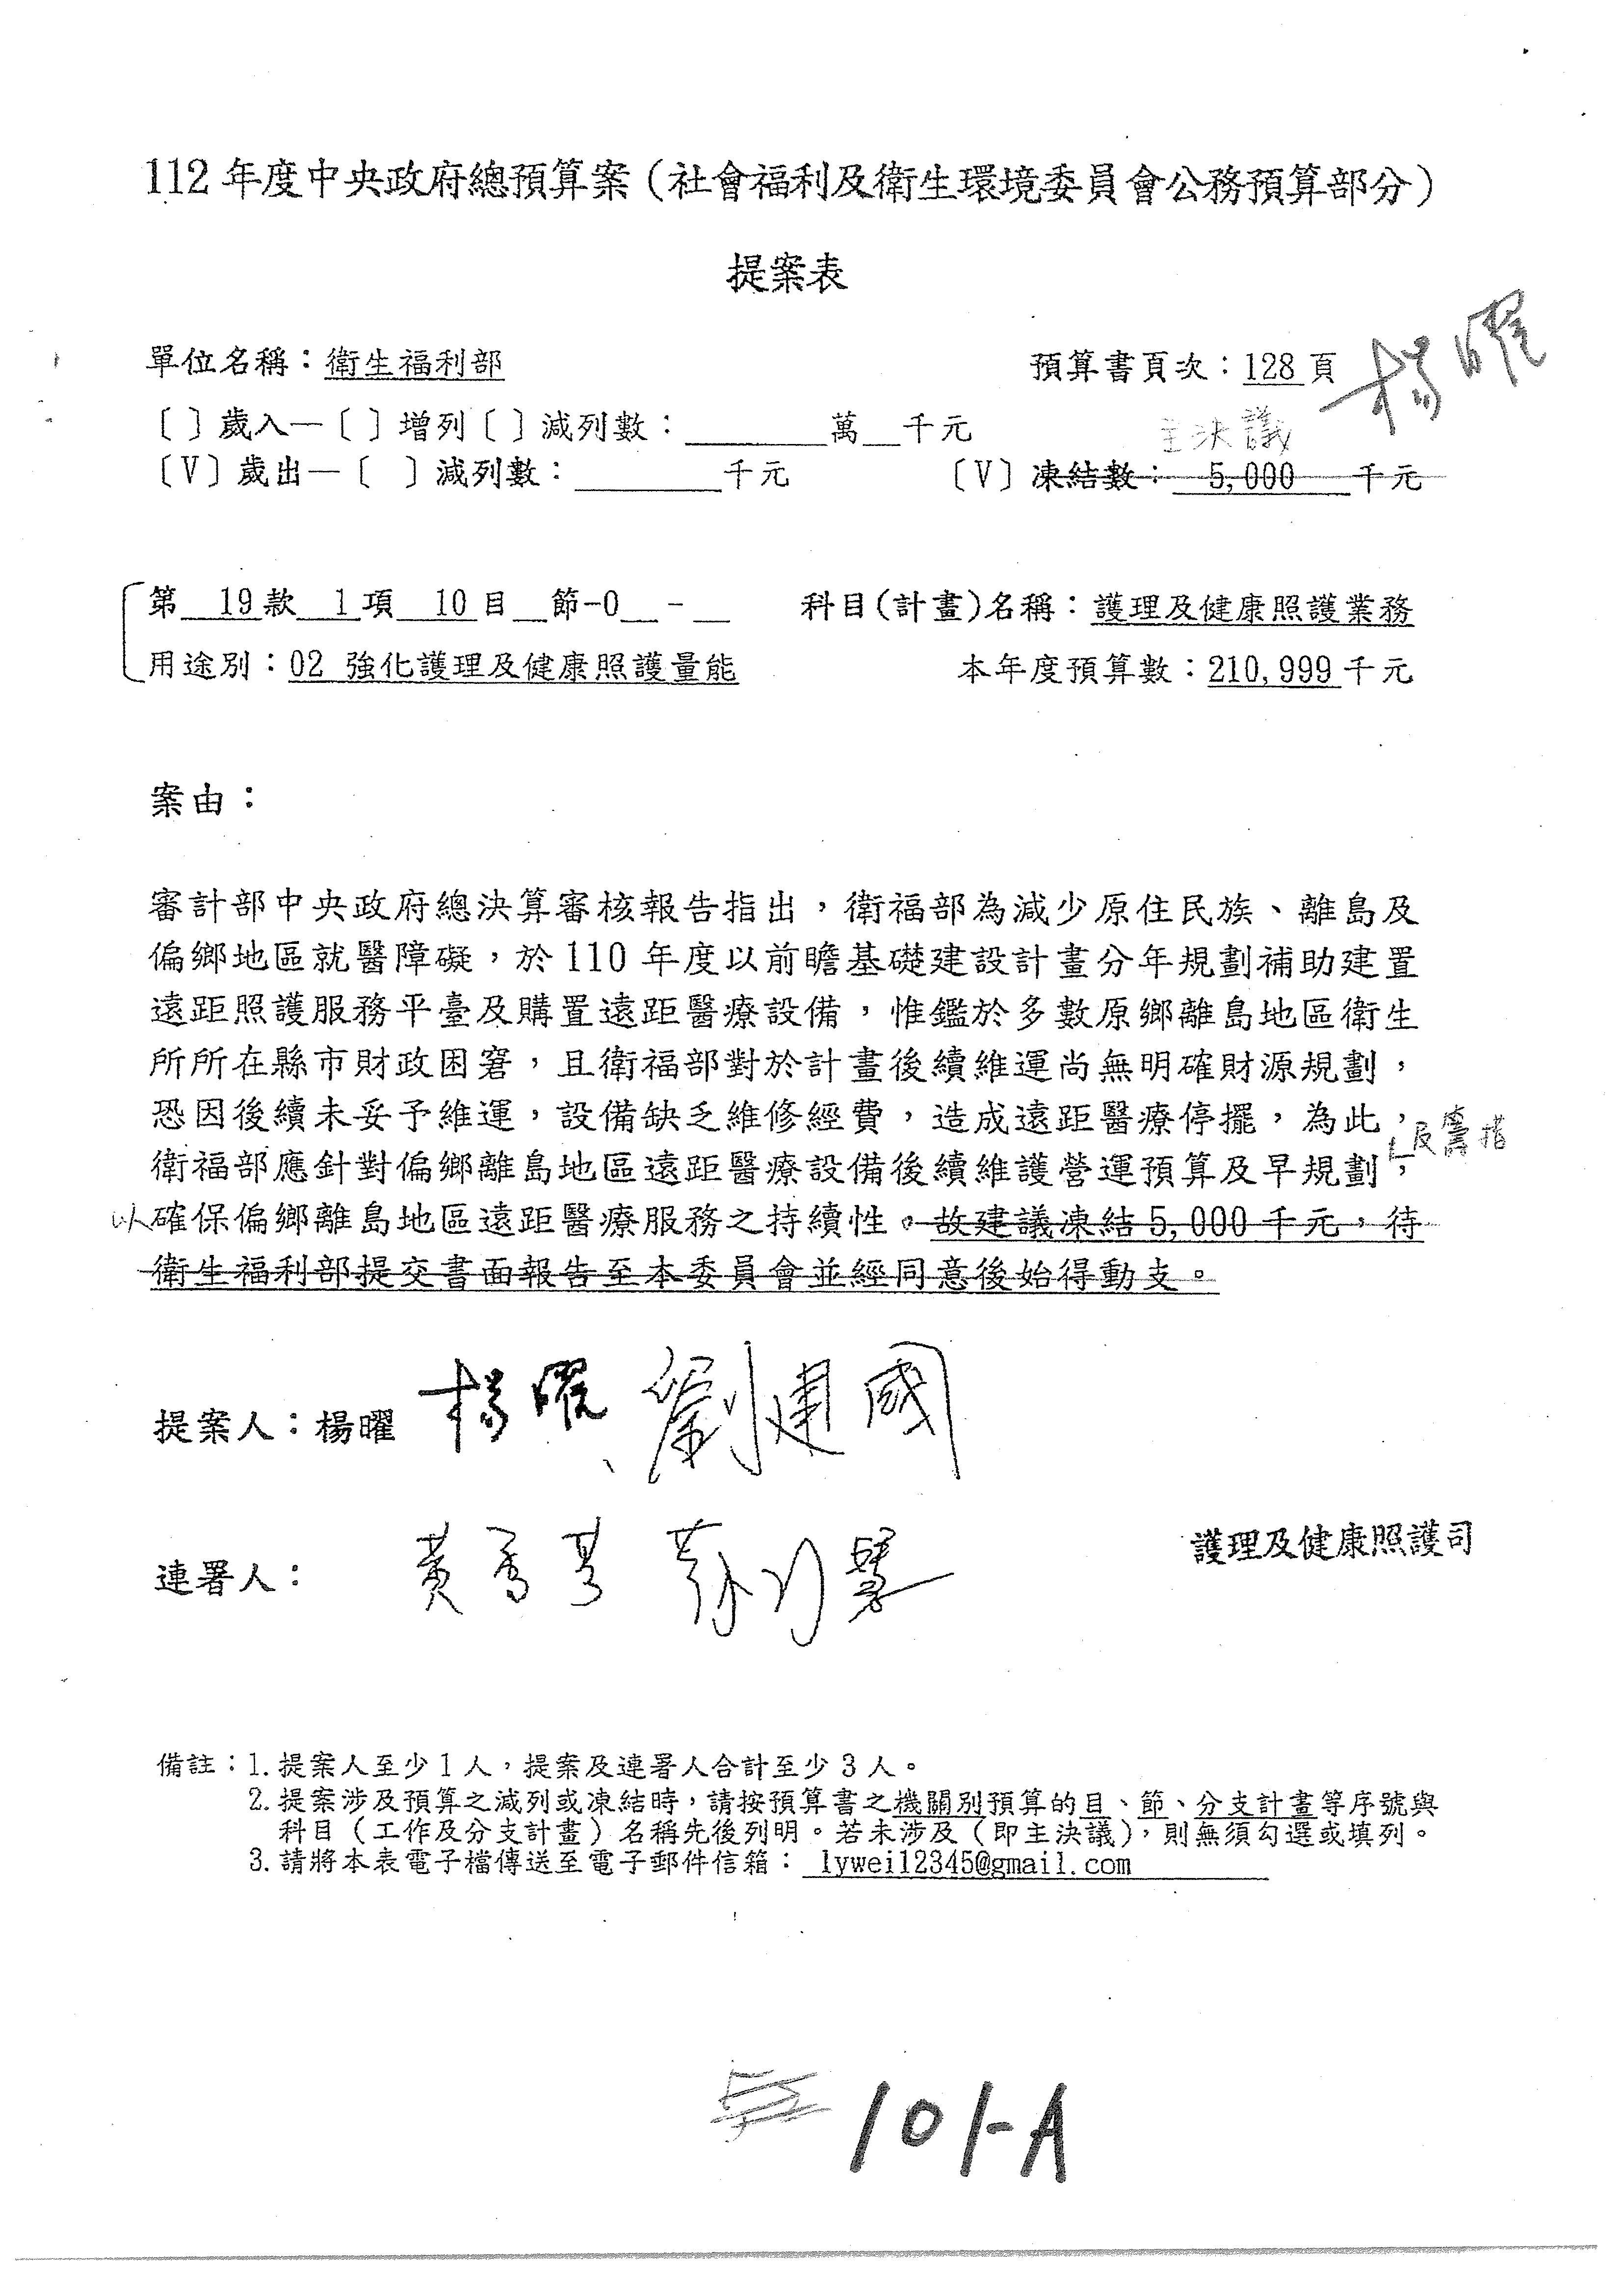 112 年度中央政府總預算案(社會福利及衛生環境委員會公務預算部分)
提案表
楊曜
單位名稱:衛生福利部 預算書頁次:128 頁
〔 〕歲入—〔 〕增列〔 〕減列數: 萬 千元
主決議
〔V〕歲出—〔 〕減列數: 千元 〔V〕凍結數: 5,000 千元
第 19 款 1 項 10 目 節-0 - 科目(計畫)名稱:護理及健康照護業務
用途別:02 強化護理及健康照護量能 本年度預算數:210,999 千元
案由:
審計部中央政府總決算審核報告指出,衛福部為減少原住民族、離島及
偏鄉地區就醫障礙,於 110 年度以前瞻基礎建設計畫分年規劃補助建置
遠距照護服務平臺及購置遠距醫療設備,惟鑑於多數原鄉離島地區衛生
所所在縣市財政困窘,且衛福部對於計畫後續維運尚無明確財源規劃,
恐因後續未妥予維運,設備缺乏維修經費,造成遠距醫療停擺,為此,
及籌措
衛福部應針對偏鄉離島地區遠距醫療設備後續維護營運預算及早規劃,
以確保偏鄉離島地區遠距醫療服務之持續性。故建議凍結 5,000 千元,待
衛生福利部提交書面報告至本委員會並經同意後始得動支。
提案人:楊曜 楊曜、劉建國
連署人: 黃秀芳
護理及健康照護司
備註:1. 提案人至少 1 人,提案及連署人合計至少 3 人。
2. 提案涉及預算之減列或凍結時,請按預算書之機關別預算的目、節、分支計畫等序號與
科目(工作及分支計畫)名稱先後列明。若未涉及(即主決議),則無須勾選或填列。
3. 請將本表電子檔傳送至電子郵件信箱: lywei12345@gmail.com
101-A